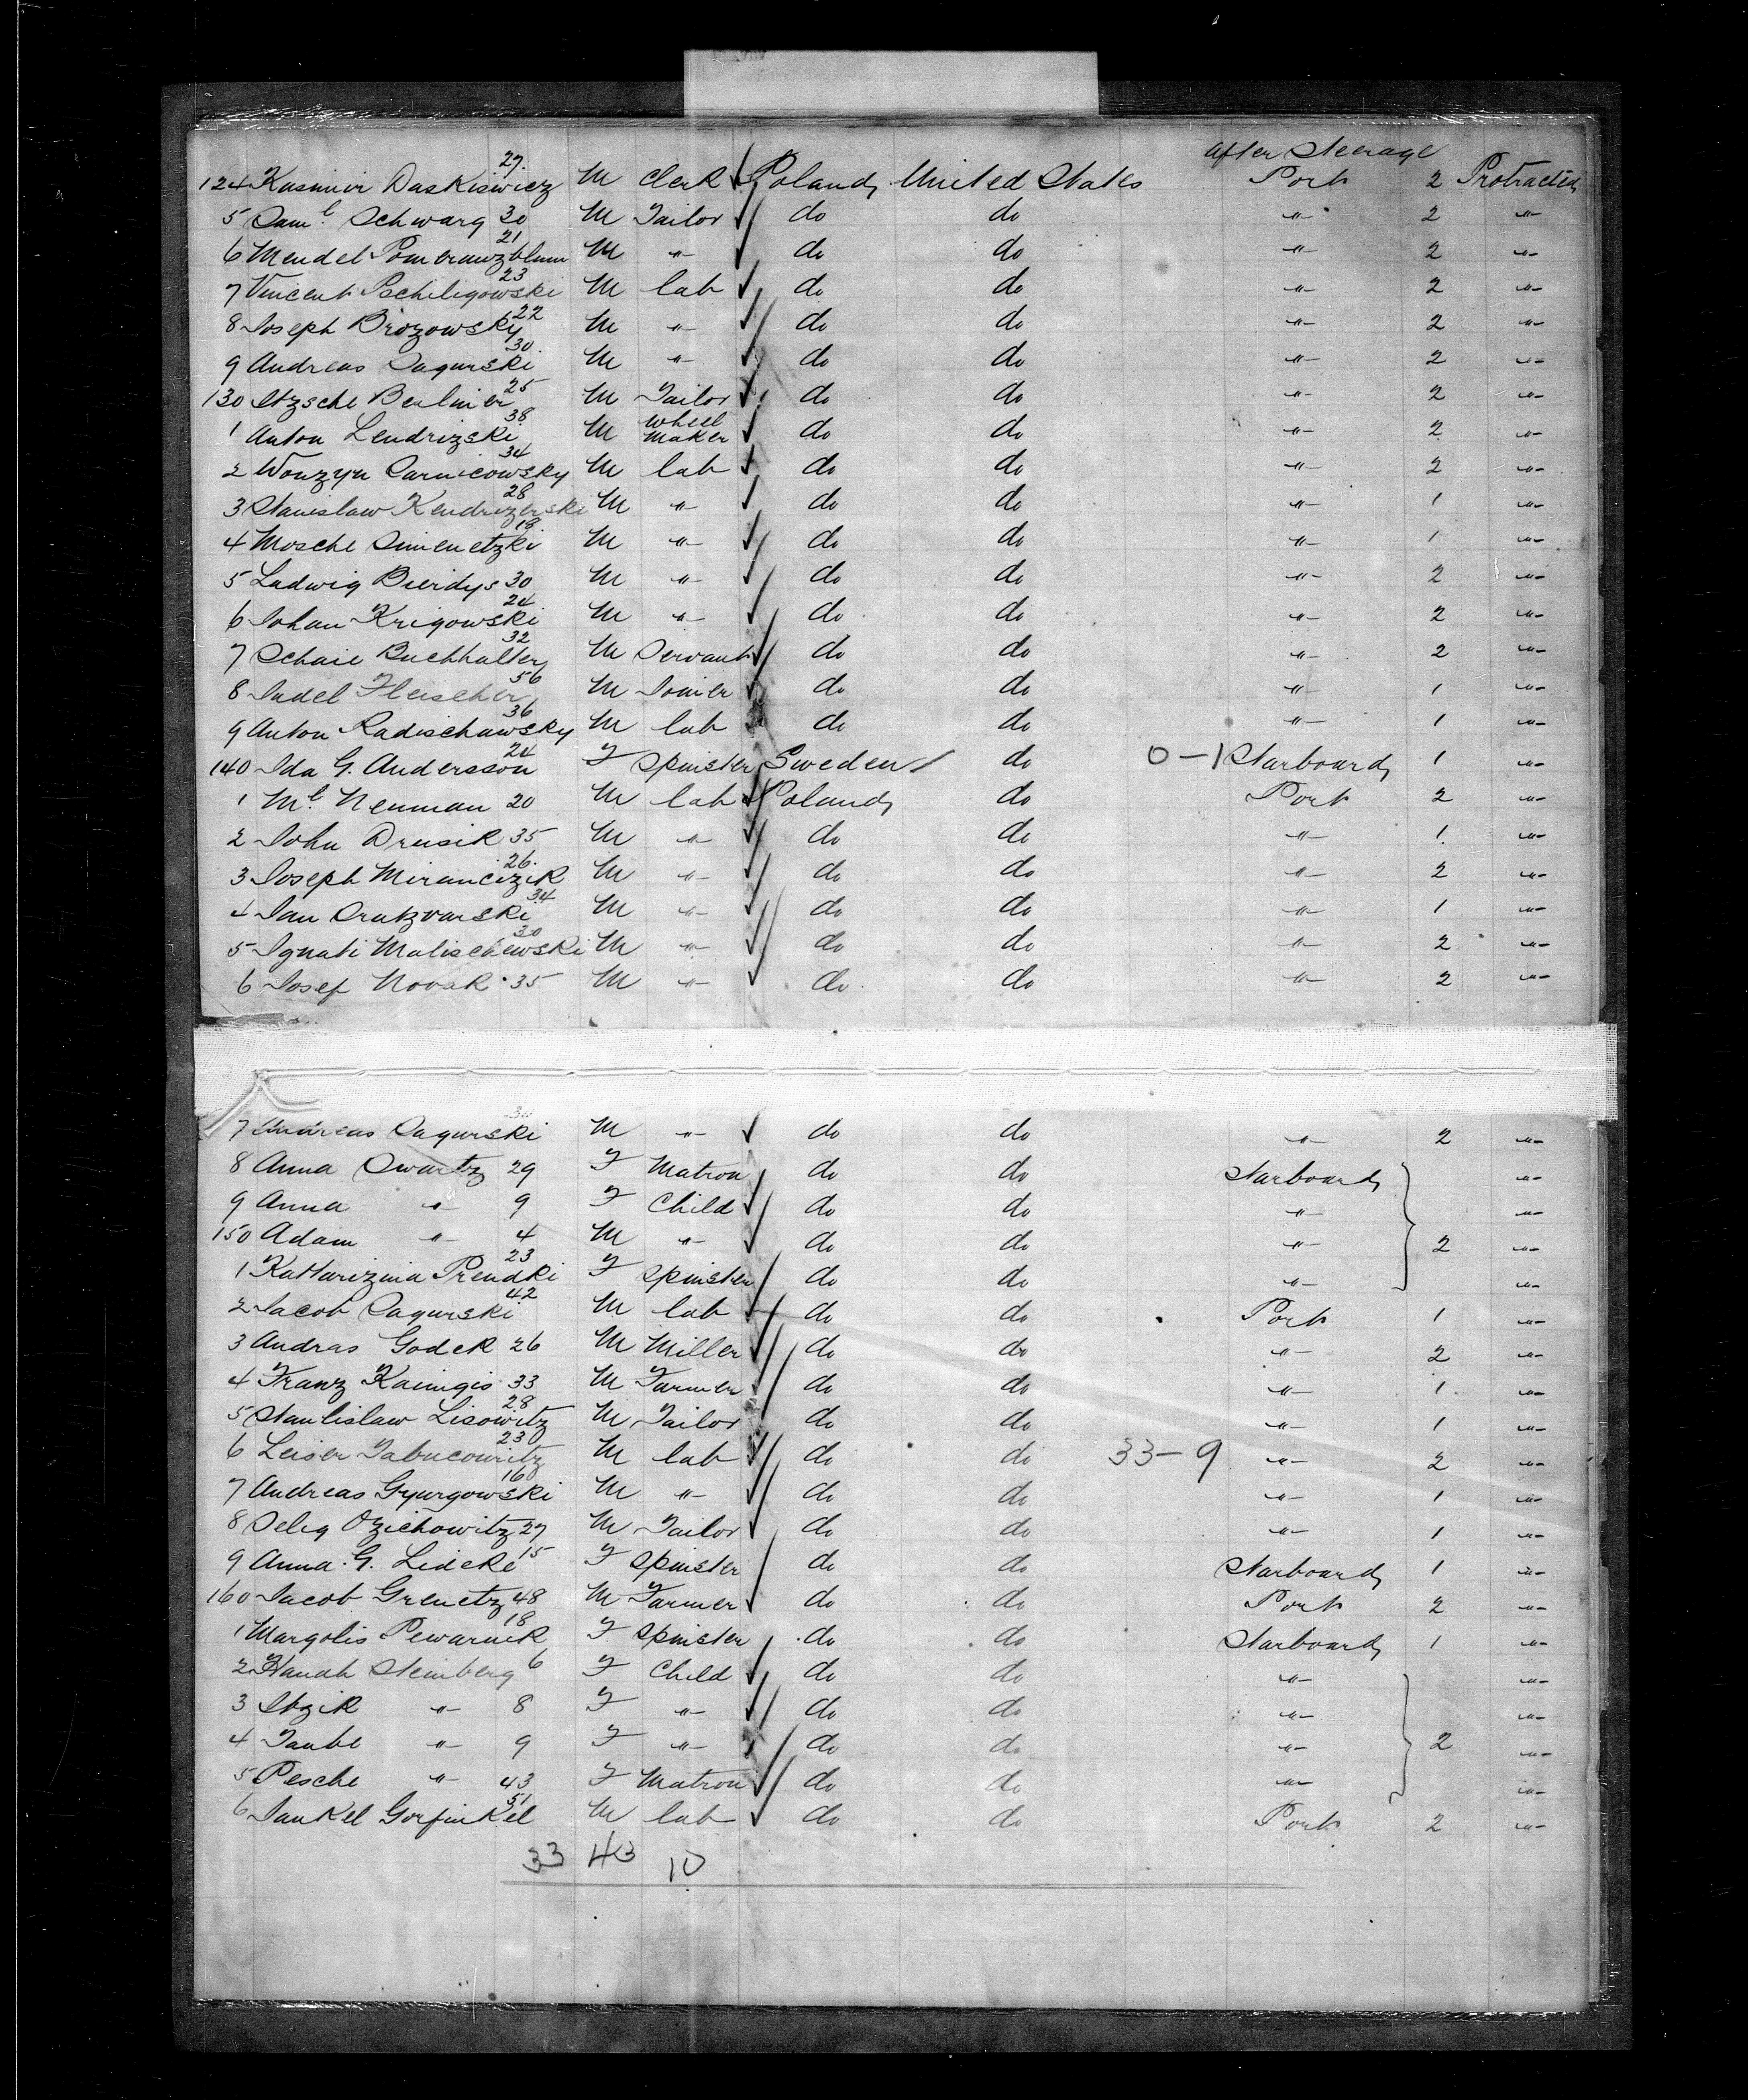 after Steerage
124 Kasimir Daskiswicz 27 M Clerk Poland United States Port 2 Protracted
5 Saml Schwarg 30 M Tailor do do " 2 "
6 Mendel Pomeranzblum 21 M " do do " 2 "
7 Vincent Pschiligowski 23 M lab do do " 2 "
8 Joseph Brozowsky 22 M " do do " 2 "
9 Andreas Sagurski 30 M " do do " 2 "
130 Itzsche Berliner 25 M Tailor do do " 2 "
1 Anton Lendrizski 38 M Wheel Maker do do " 2 "
2 Wonzyn Sarnicowsky 34 M lab do do " 2 "
3 Stanislaw Kendrizerski 28 M " do do " 1 "
4 Mosche Simenetzki M " do do " 1 "
5 Ludwig Bierdys 30 M " do do " 2 "
6 Johan Krigowski 24 M " do do " 2 "
7 Schaie Buchhalter 32 M Servant do do " 2 "
8 Judel Fleischer 56 M Joiner do do " 1 "
9 Anton Radischawsky 36 M lab do do " 1 "
140 Ida G. Andersson 24 F Spinster Sweden do 0-1 Starboard 1 "
1 Ml Neuman 20 M lab Poland do Port 2 "
2 John Drusik 35 M " do do " 1 "
3 Joseph Mirancizik 26 M " do do " 2 "
4 Jan 34 M " do do " 1 "
5 Ignati Malischewski 30 M " do do " 2 "
6 Josef Novak 35 M " do do " 2 "
7 Andreas Sagurski 30 M " do do " 2 "
8 Anna Swartz 29 F Matron do do Starboard "
9 Anna " 9 F Child do do " "
150 Adam " 4 M " do do " 2 "
1 Kattarizina Prendki 23 F Spinster do do " "
2 Jacob Sagurski 42 M lab do do Port 1 "
3 Andras Godek 26 M Miller do do " 2 "
4 Franz Kainigis 33 M Farmer do do " 1 "
5 Stanlislaw Lisowitz 28 M Tailor do do " 1 "
6 Leiser Jabucowitz 23 M lab do do 33-9 " 2 "
7 Andreas Gyurgowski 16 M " do do " 1 "
8 Selig Ozichowitz 27 M Tailor do do " 1 "
9 Anna G. Lideke 15 F Spinster do do Starboard 1 "
160 Jacob Grenetz 48 M Farmer do do Port 2 "
1 Margolis Pewarnik 18 F Spinster do do Starboard 1 "
2 Hanah Steinberg 6 F Child do do " "
3 Itzik " 8 F " do do " "
4 Taube " 9 F " do do " 2 "
5 Pesche " 43 F Matron do do " "
6 Jankel Gorfinkel 51 M lab do do Port 2 "
33 43 10